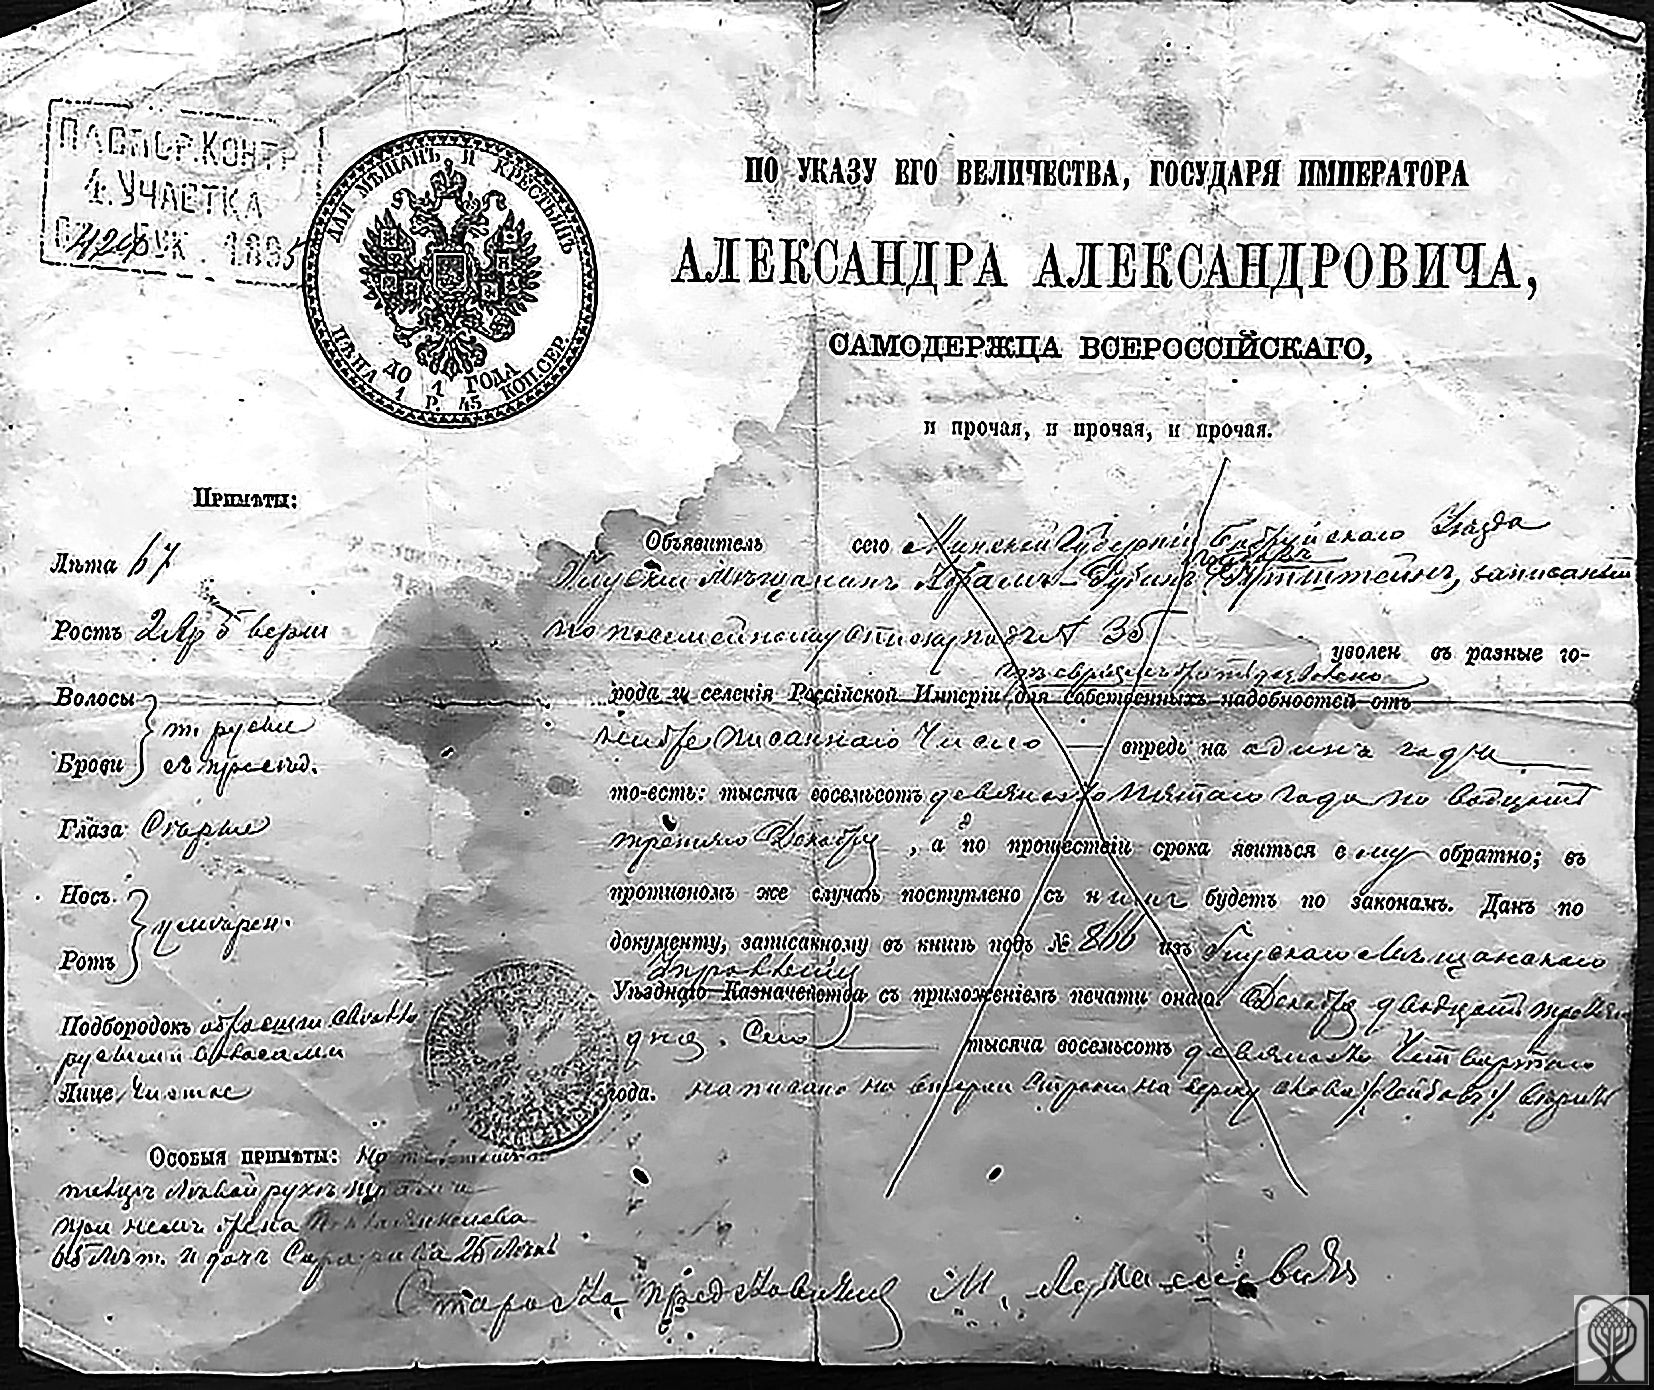 ПАСПОР. КОНТР
4. УЧАСТКА
БУК. 1895
ДЛЯ МѢЩАНЪ И КРЕСТЬЯНЪ
ДО 1 ГОДА
ЦѢНА 1 Р. 45 КОП. СЕР.
ПО УКАЗУ ЕГО ВЕЛИЧЕСТВА, ГОСУДАРЯ ИМПЕРАТОРА
АЛЕКСАНДРА АЛЕКСАНДРОВИЧА,
САМОДЕРЖЦА ВСЕРОССІЙСКАГО,
и прочая, и прочая, и прочая.
Примѣты:
Лѣта 67
Ростъ 2 ар 5 верш
Волосы
т. русые
Брови съ просѣд.
Глаза Сѣрые
Носъ
умѣрен.
Ротъ
Подбородокъ обросшій
русыми волосами
Лице Чистое
Особыя примѣты: На
пальцѣ лѣвой руки
при немъ жена
65 лѣт. и дочь 25 лѣтъ
Объявитель сего Минской Губерніи Бобруйскаго Уѣзда
Глускій Мѣщанинъ Абрамъ Рубинъ записанный
по посемейному списку подъ № 35
уволен въ разные го-
рода и селенія Россійской Имперіи для собственныхъ надобностей отъ
нижеписаннаго Числа — впредь на одинъ годъ
то-есть: тысяча восемьсотъ девяносто пятаго года по двадцать
третьяго Декабря, а по прошествіи срока явиться ему обратно; въ
противномъ же случаѣ поступлено съ нимъ будетъ по законамъ. Данъ по
документу, записанному въ книгѣ подъ № 866 изъ Глускаго Мѣщанскаго
Управленія
Уѣзднаго Казначейства съ приложеніемъ печати онаго. Декабря двадцать третьяго
дня. Сего — тысяча восемьсотъ девяносто Четвертаго
года. написано на второй строкѣ на верху слово
Староста М.